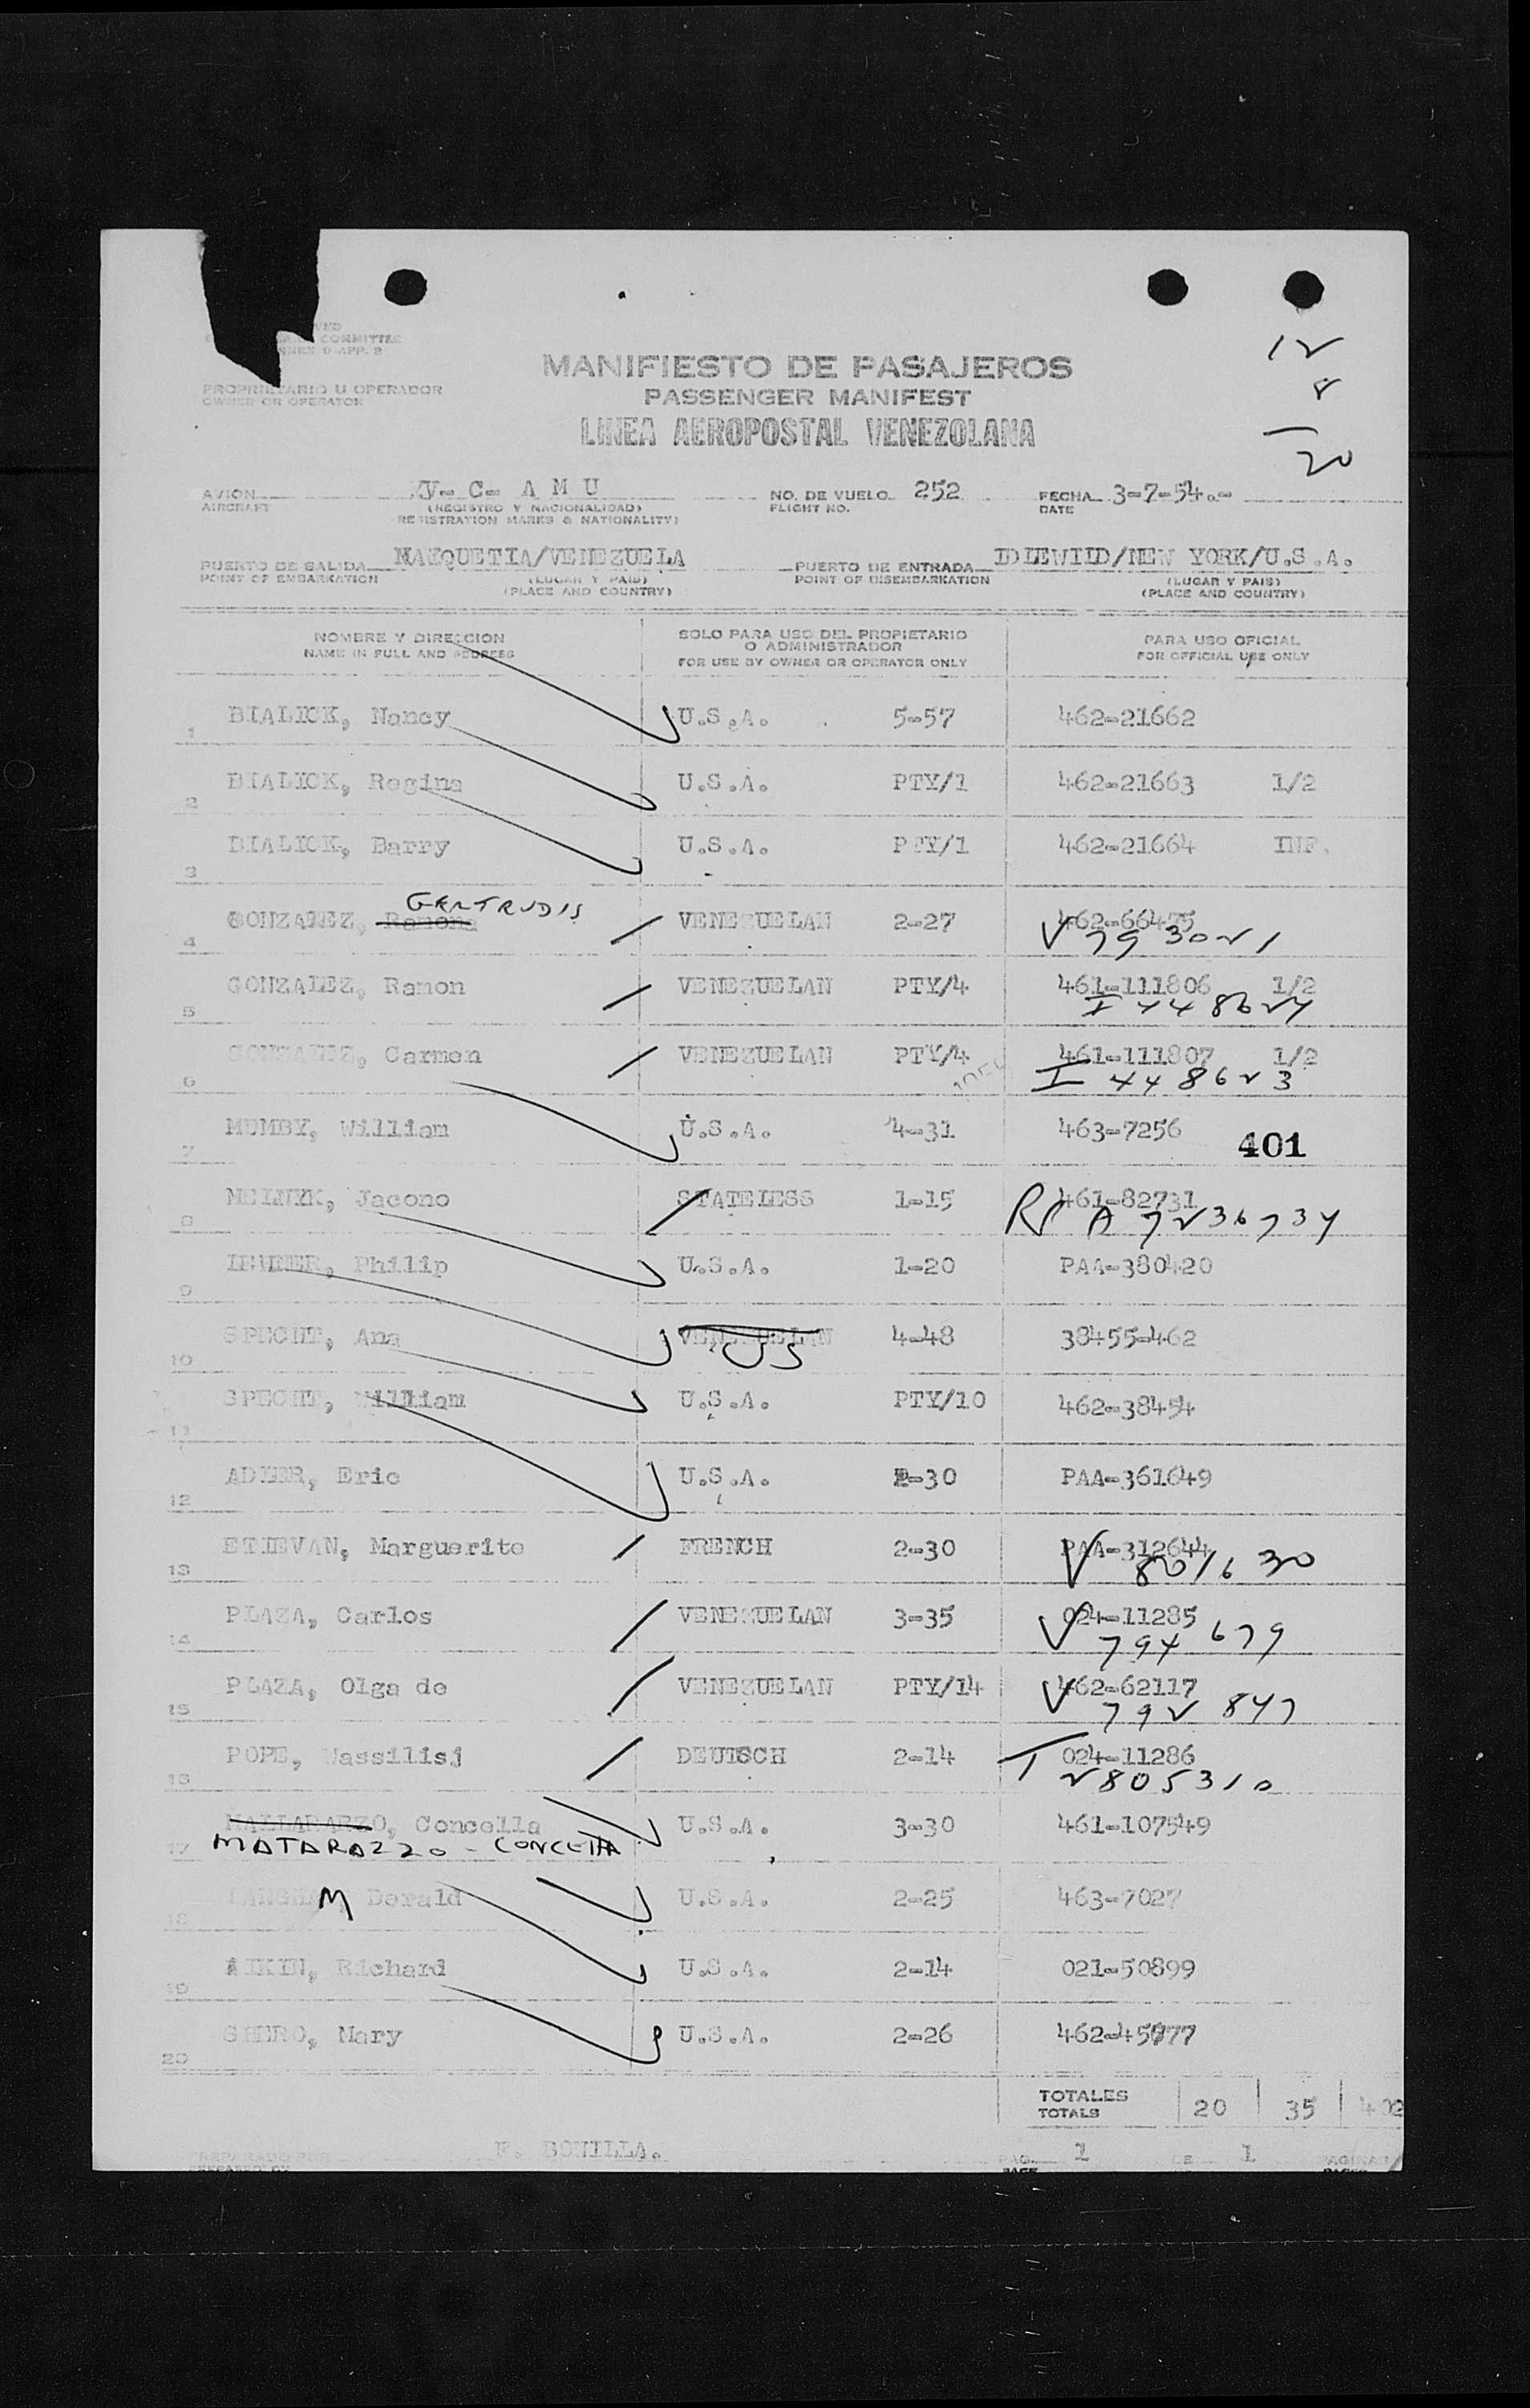 COMMITTEE
APP. 2
PROPRIETARIO U OPERADOR
OWNER OR OPERATOR
MANIFIESTO DE PASAJEROS
PASSENGER MANIFEST
LINEA AEROPOSTAL VENEZOLANA
12
8
20
AVION Y- C- A M U NO. DE VUELO 252 FECHA 3-7-54.-
AIRCRAFT (REGISTRO Y NACIONALIDAD) FLIGHT NO. DATE
REGISTRATION MARKS & NATIONALITY)
PUERTO DE SALIDA MAIQUETIA/VENEZUELA PUERTO DE ENTRADA IDLEWILD/NEW YORK/U.S.A.
POINT OF EMBARKATION (LUGAR Y PAIS) POINT OF DISEMBARKATION (LUGAR Y PAIS)
(PLACE AND COUNTRY) (PLACE AND COUNTRY)
NOMBRE Y DIRECCION SOLO PARA USO DEL PROPIETARIO PARA USO OFICIAL
O ADMINISTRADOR
NAME IN FULL AND ADDRESS FOR USE BY OWNER OR OPERATOR ONLY FOR OFFICIAL USE ONLY
1 BIALICK, Nancy U.S.A. 5-57 462-21662
2 BIALICK, Regina U.S.A. PTY/1 462-21663 1/2
3 BIALICK, Barry U.S.A. PTY/1 462-21664 INF.
GERTRUDIS
4 GONZALEZ, Ramona VENEZUELAN 2-27 462-66475
V 793021
5 GONZALEZ, Ramon VENEZUELAN PTY/4 461-111806 1/2
I 448624
6 GONZALEZ, Carmen VENEZUELAN PTY/4 461-111807 1/2
I 448623
7 MUMBY, William U.S.A. 4-31 463-7256
401
8 MELNYK, Jacono STATELESS 1-15 461-82731
A 7236734
9 Philip U.S.A. 1-20 PAA-380420
10 SPECHT, Ana VENEZUELAN 4-48 38455-462
US
11 SPECHT, William U.S.A. PTY/10 462-38454
12 ADLER, Eric U.S.A. 2-30 PAA-361649
13 ETIEVAN, Marguerite FRENCH 2-30 PAA-312644
V 801630
14 PLAZA, Carlos VENEZUELAN 3-35 024-11285
V 794679
15 PLAZA, Olga de VENEZUELAN PTY/14 462-62117
V 792847
16 POPE, Wassilisj DEUTSCH 2-14 024-11286
T 2805310
17 MALLARARZO, Concella U.S.A. 3-30 461-107549
MATARAZZO - CONCETTA
18 M Derald U.S.A. 2-25 463-7027
19 AIKIN, Richard U.S.A. 2-14 021-50899
20 SHERO, Mary U.S.A. 2-26 462-45777
TOTALES
TOTALS 20 35 402
PREPARADO POR F. BONILLA. PAG. 1 DE 1 PAGINAS
PREPARED BY PAGE PAGES